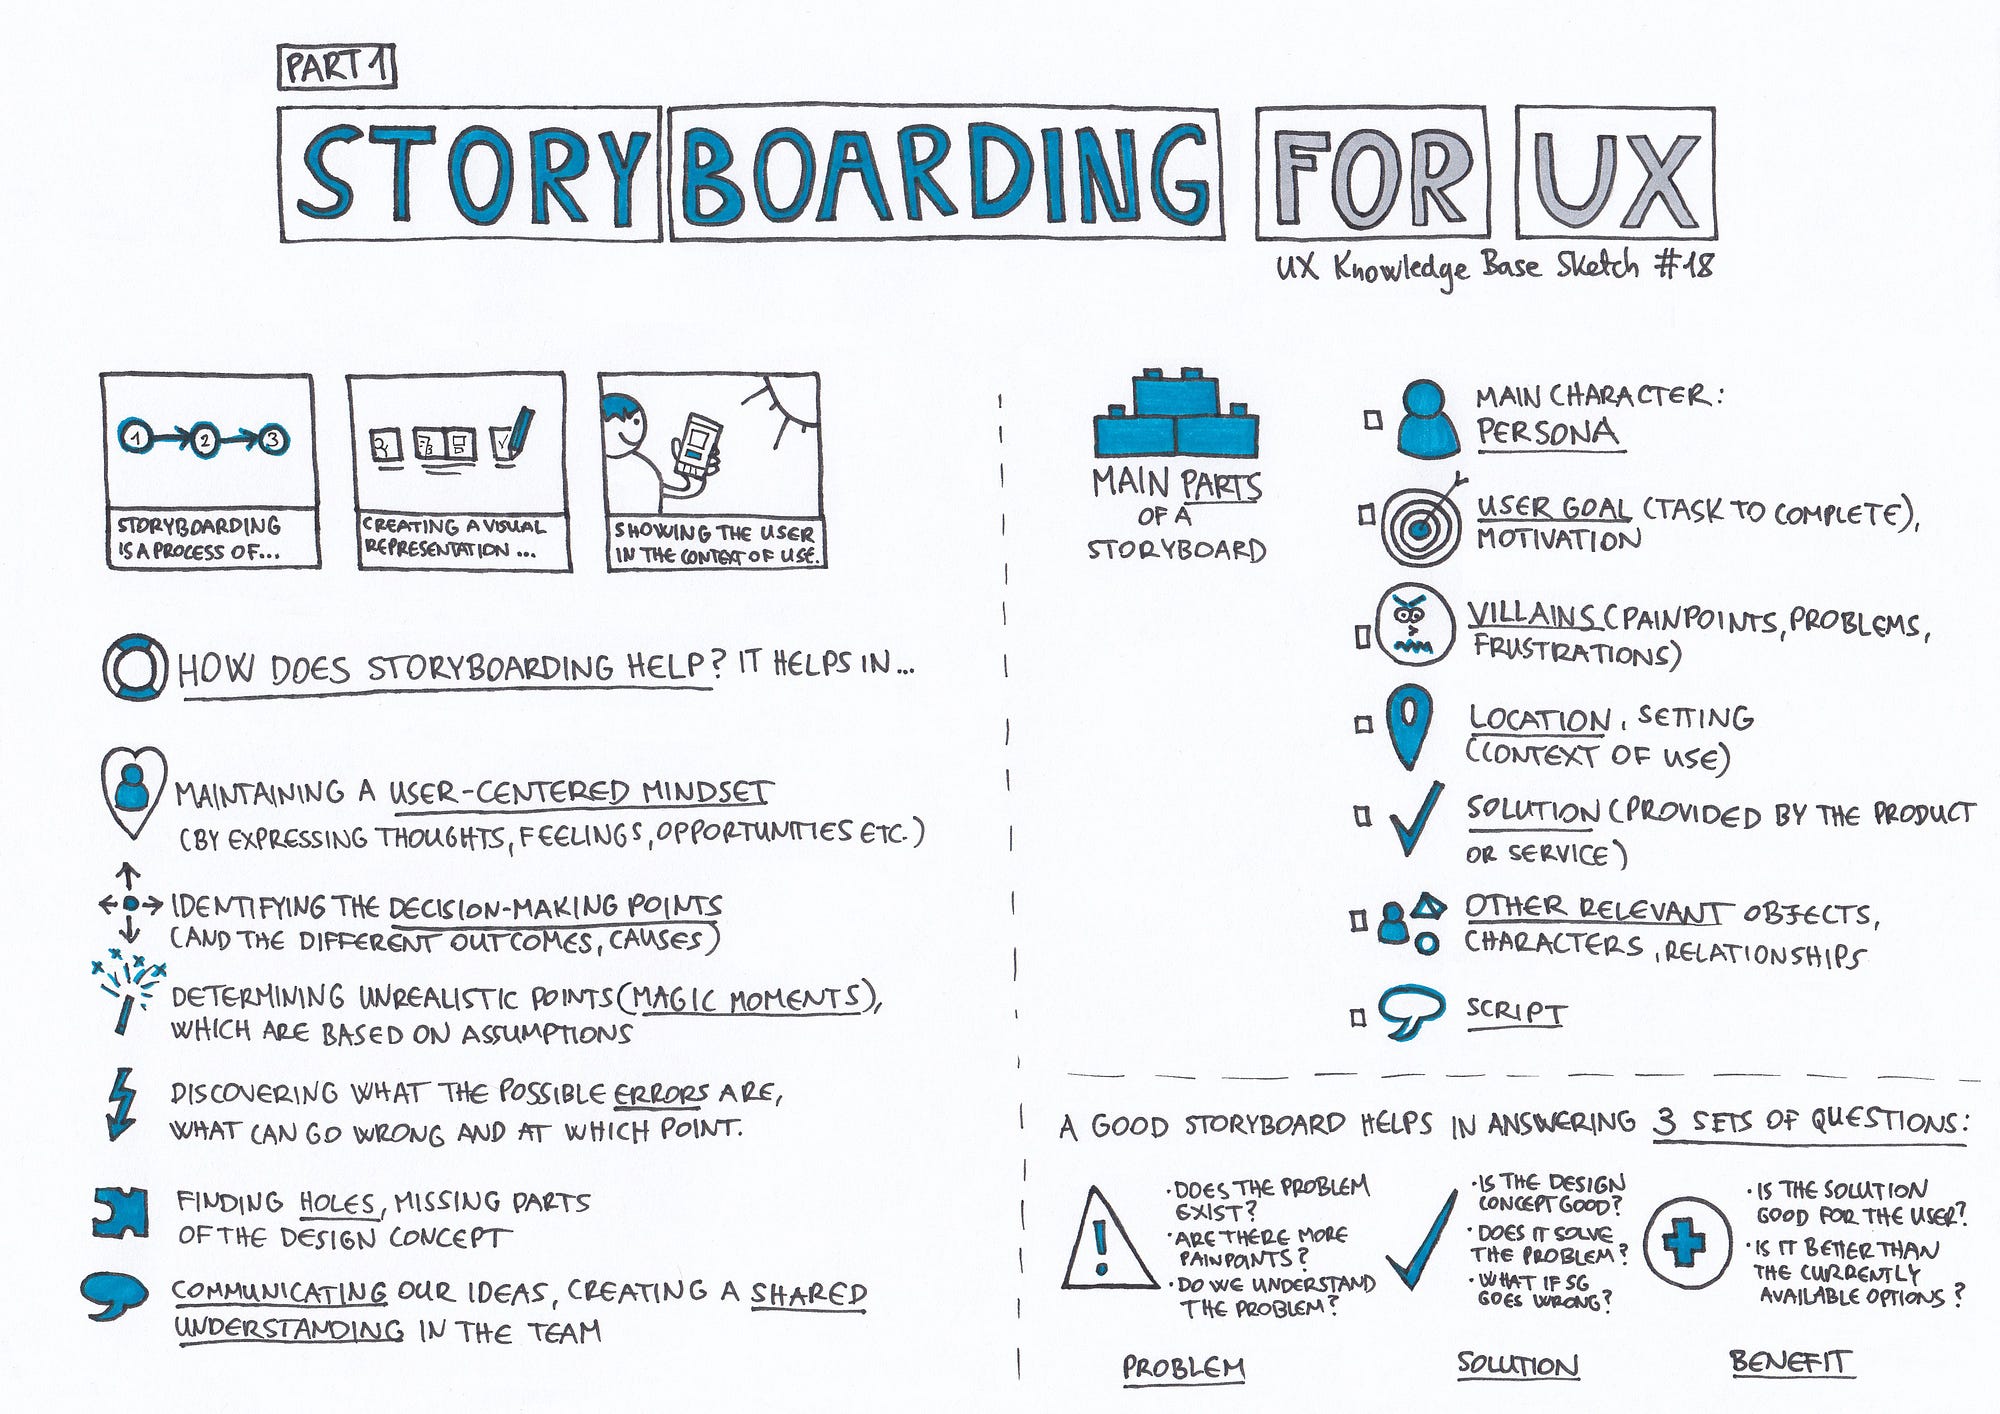 PART 1
STORYBOARDING FOR UX
UX Knowledge Base Sketch #18
1 2 3
STORYBOARDING
IS A PROCESS OF...
CREATING A VISUAL
REPRESENTATION...
SHOWING THE USER
IN THE CONTEXT OF USE.
HOW DOES STORYBOARDING HELP? IT HELPS IN...
MAINTAINING A USER-CENTERED MINDSET
(BY EXPRESSING THOUGHTS, FEELINGS, OPPORTUNITIES ETC.)
IDENTIFYING THE DECISION-MAKING POINTS
(AND THE DIFFERENT OUTCOMES, CAUSES)
DETERMINING UNREALISTIC POINTS (MAGIC MOMENTS),
WHICH ARE BASED ON ASSUMPTIONS
DISCOVERING WHAT THE POSSIBLE ERRORS ARE,
WHAT CAN GO WRONG AND AT WHICH POINT.
FINDING HOLES, MISSING PARTS
OF THE DESIGN CONCEPT
COMMUNICATING OUR IDEAS, CREATING A SHARED
UNDERSTANDING IN THE TEAM
MAIN PARTS
OF A
STORYBOARD
MAIN CHARACTER:
PERSONA
USER GOAL (TASK TO COMPLETE),
MOTIVATION
VILLAINS (PAINPOINTS, PROBLEMS,
FRUSTRATIONS)
LOCATION, SETTING
(CONTEXT OF USE)
SOLUTION (PROVIDED BY THE PRODUCT
OR SERVICE)
OTHER RELEVANT OBJECTS,
CHARACTERS, RELATIONSHIPS
SCRIPT
A GOOD STORYBOARD HELPS IN ANSWERING 3 SETS OF QUESTIONS:
• DOES THE PROBLEM
EXIST?
• ARE THERE MORE
PAINPOINTS?
• DO WE UNDERSTAND
THE PROBLEM?
PROBLEM
• IS THE DESIGN
CONCEPT GOOD?
• DOES IT SOLVE
THE PROBLEM?
• WHAT IF SG
GOES WRONG?
SOLUTION
• IS THE SOLUTION
GOOD FOR THE USER?
• IS IT BETTER THAN
THE CURRENTLY
AVAILABLE OPTIONS?
BENEFIT